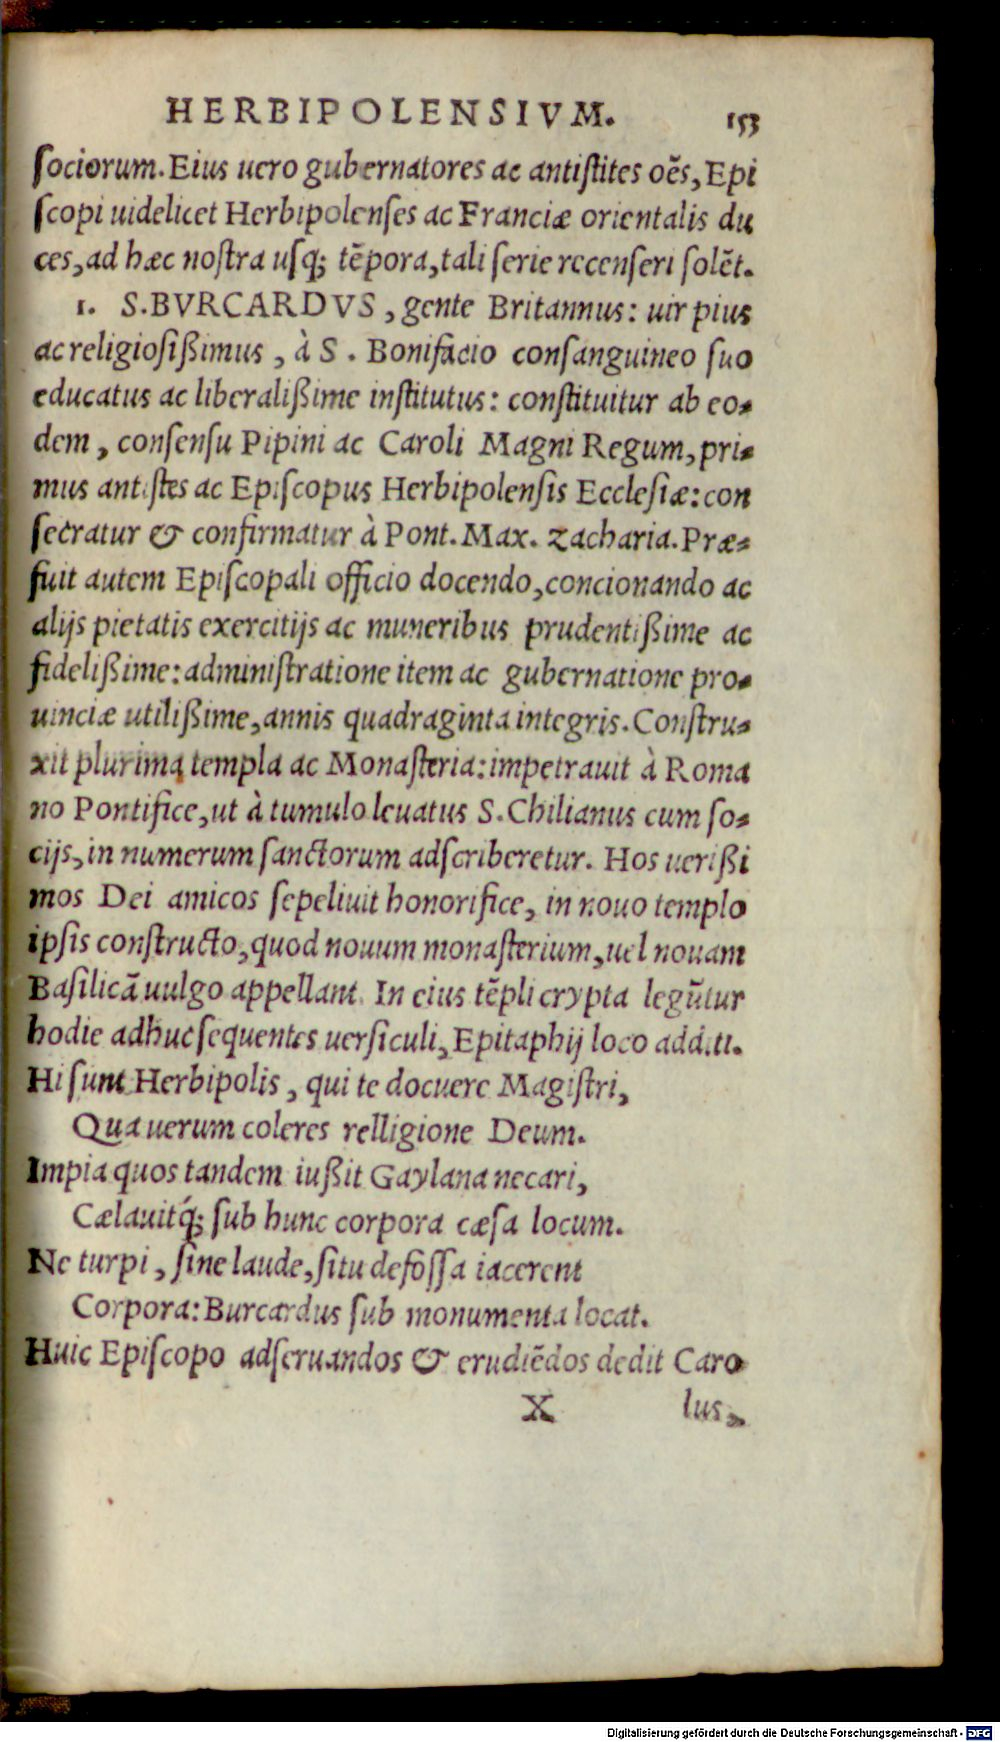 HERBIPOLENSIVM. 153
sociorum. Eius uero gubernatores ac antistites oẽs, Epi
scopi uidelicet Herbipolenses ac Franciæ orientalis du
ces, ad hæc nostra usq; tẽpora, tali serie recenseri solẽt.
1. S. BVRCARDVS, gente Britannus: uir pius
ac religiosißimus, à S. Bonifacio consanguineo suo
educatus ac liberalißime institutus: constituitur ab eo-
dem, consensu Pipini ac Caroli Magni Regum, pri-
mus antistes ac Episcopus Herbipolensis Ecclesiæ: con
secratur & confirmatur à Pont. Max. Zacharia. Præ-
fuit autem Episcopali officio docendo, concionando ac
alijs pietatis exercitijs ac muneribus prudentißime ac
fidelißime: administratione item ac gubernatione pro-
uinciæ utilißime, annis quadraginta integris. Constru-
xit plurima templa ac Monasteria: impetrauit à Roma
no Pontifice, ut à tumulo leuatus S. Chilianus cum so-
cijs, in numerum sanctorum adscriberetur. Hos uerißi
mos Dei amicos sepeliuit honorifice, in nouo templo
ipsis constructo, quod nouum monasterium, uel nouam
Basilicã uulgo appellant. In eius tẽpli crypta legũtur
hodie adhuc sequentes uersiculi, Epitaphij loco additi.
Hi sunt Herbipolis, qui te docuere Magistri,
Qua uerum coleres relligione Deum.
Impia quos tandem iußit Gaylana necari,
Cælauitq́; sub hunc corpora cæsa locum.
Ne turpi, sine laude, situ defossa iacerent
Corpora: Burcardus sub monumenta locat.
Huic Episcopo adseruandos & erudiẽdos dedit Caro
X lus,
Digitalisierung gefördert durch die Deutsche Forschungsgemeinschaft - DFG